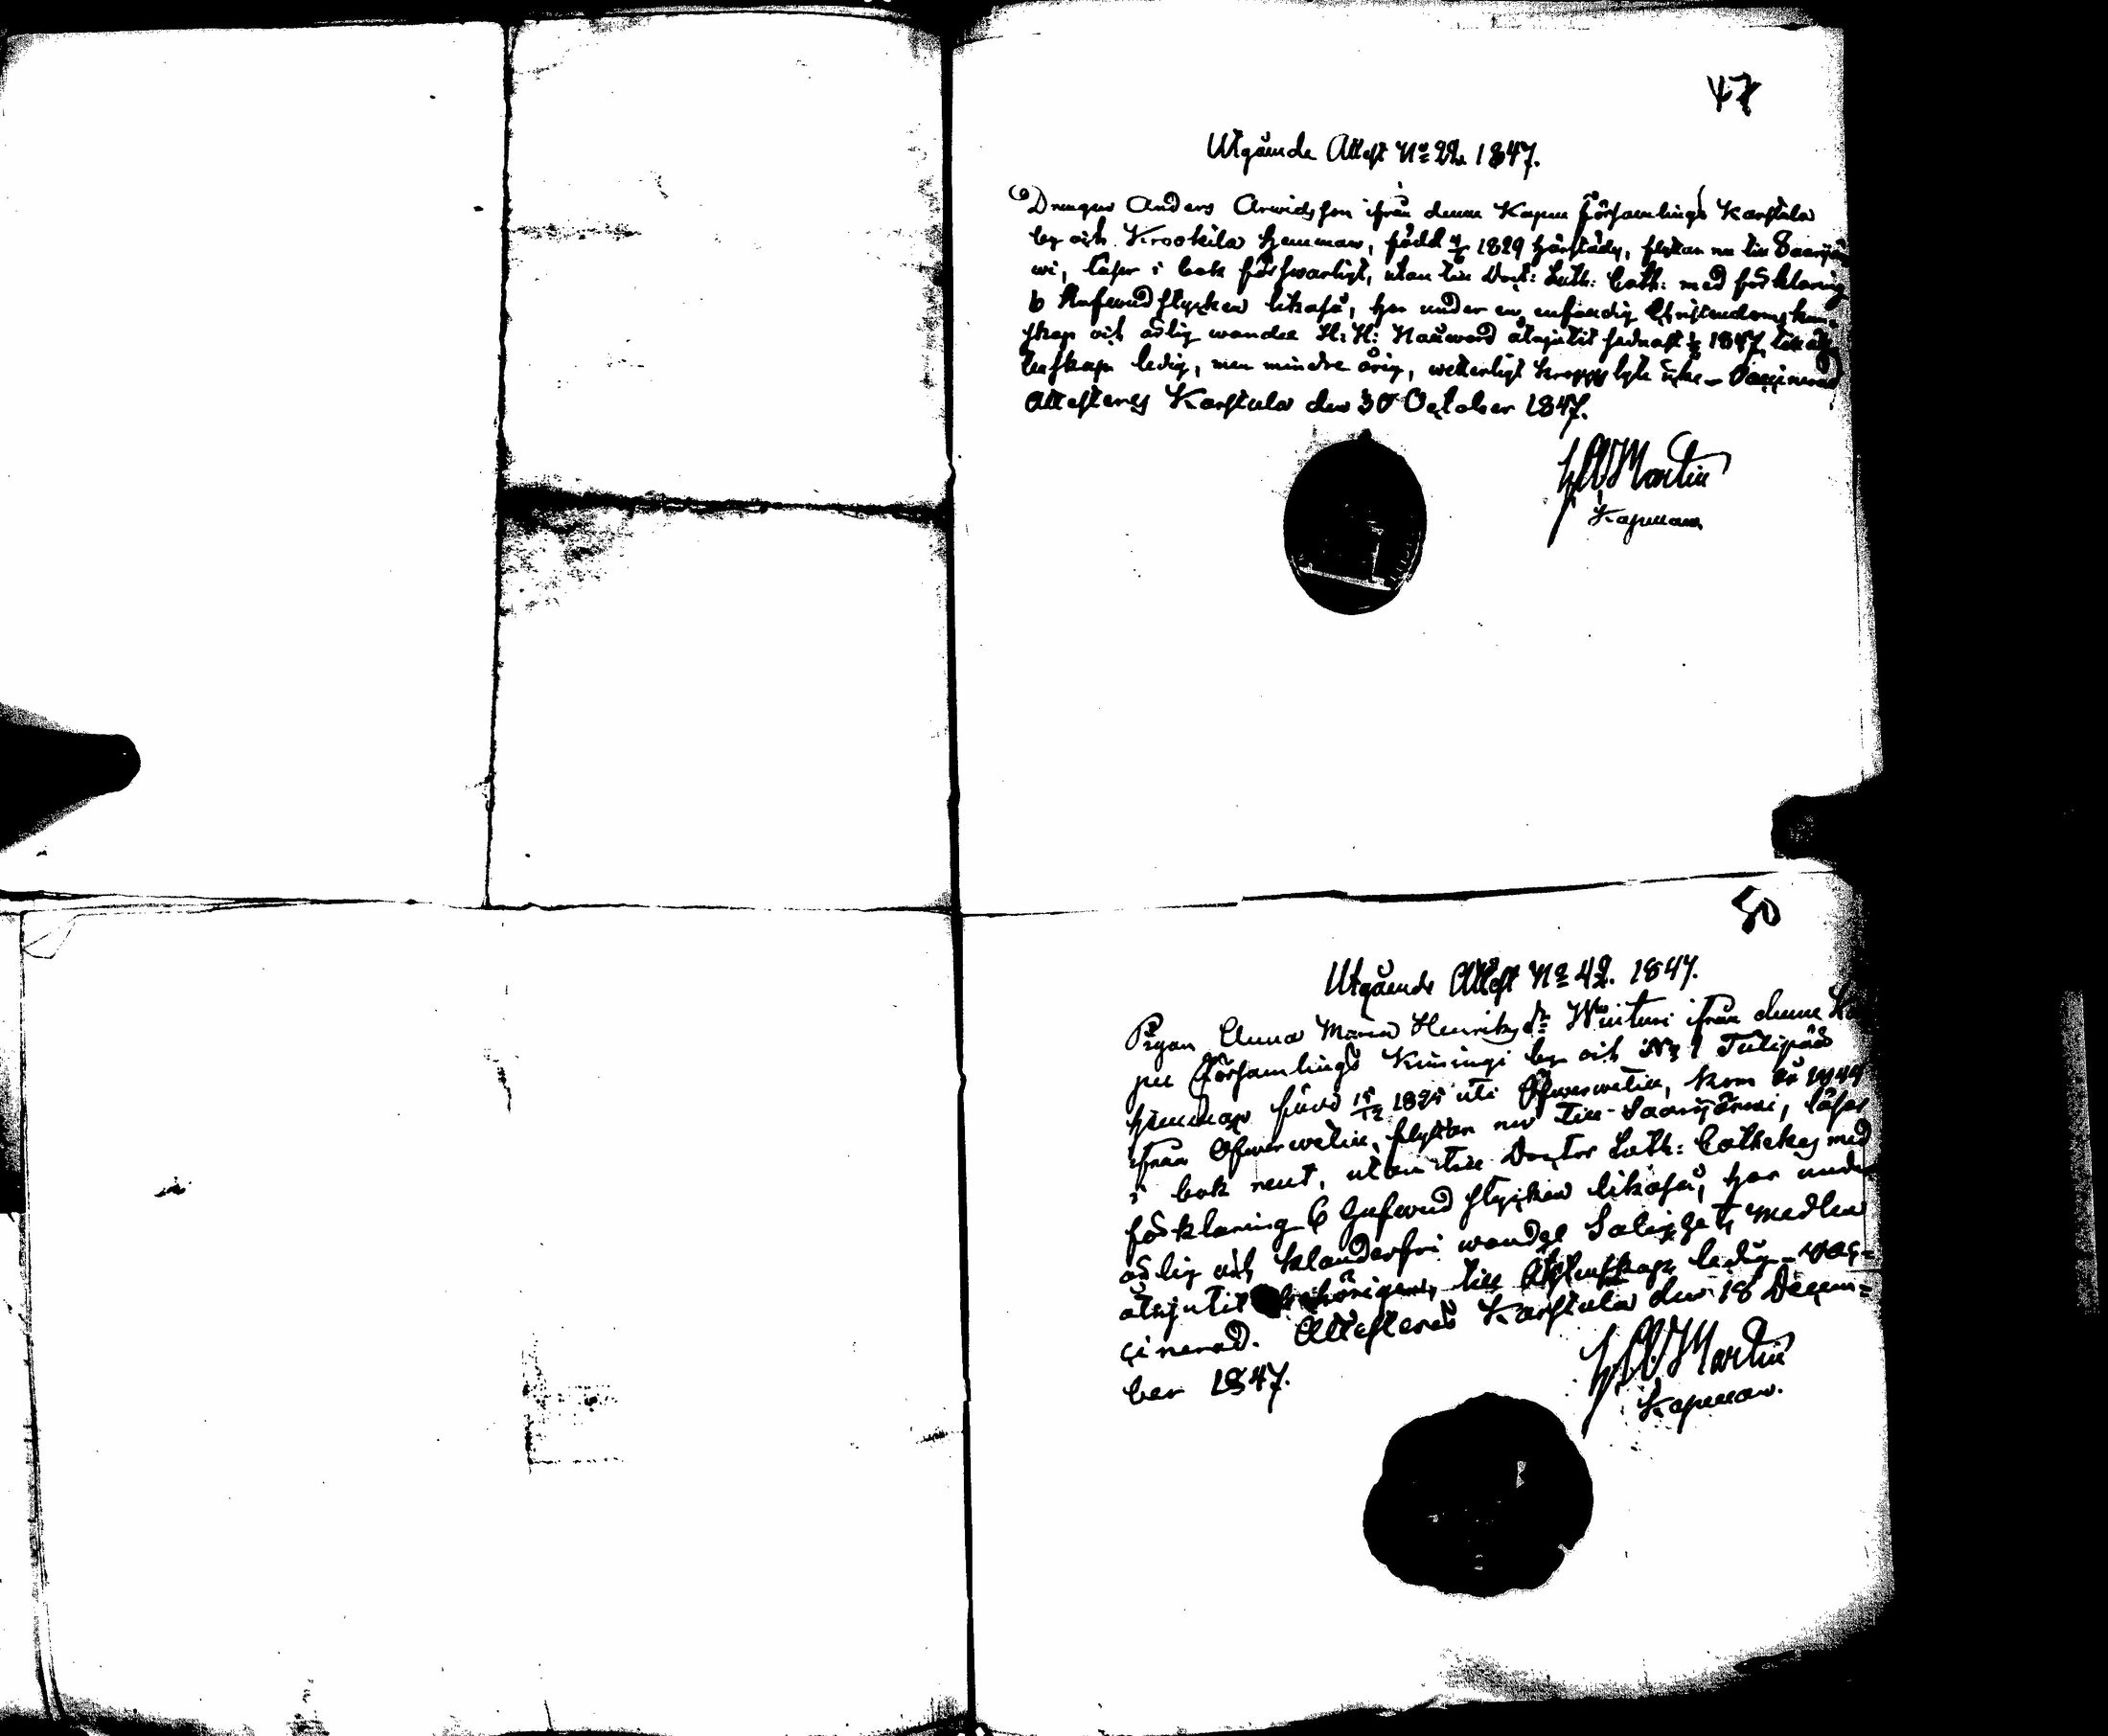 47
Utgående Attest No 22. 1847.
Drengen Anders Arwidsson ifrån denna Kapell Församlings Karstula
by och Krookila hemman, född 1829 härstädes, flyttar nu till Saarijär
wi, läser i bok försvarligt, utan till Doct: Luth: Cath: med förklaring
6 Hufwud stycken likaså, har under en enfaldig Christendoms kun-
skap och ärlig wandel H: H: Nattward åtnjutit sednast 1847, till äk-
tenskap ledig, men minderårig, wetterligt kroppslyte icke - Vaccinerad
Attesteras Karstula den 30 October 1847.
Martin
Kapellan
50
Utgående Attest No 42. 1847.
Pigan Anna Maria Henriksdr ifrån denna Ka
pell Församlings Kiminge by och No 1 Tulipää
hemman född 15/12 1825 uti Öfwerwetill, kom år
ifrån Öfwerwetill, flyttar nu till Saarijärwi, läser
i bok rent, utan till Doctor Luth: Cathekes med
förklaring 6 Hufwud stycken likaså, har under
ärlig och klanderfri wandel Salighets medlen
åtnjutit behörigen, till Äktenskap ledig - vac-
cinerad. Attesteras Karstula den 18 Decem-
ber 1847.
Martin
Kapellan.